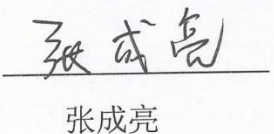 张成亮
张成亮